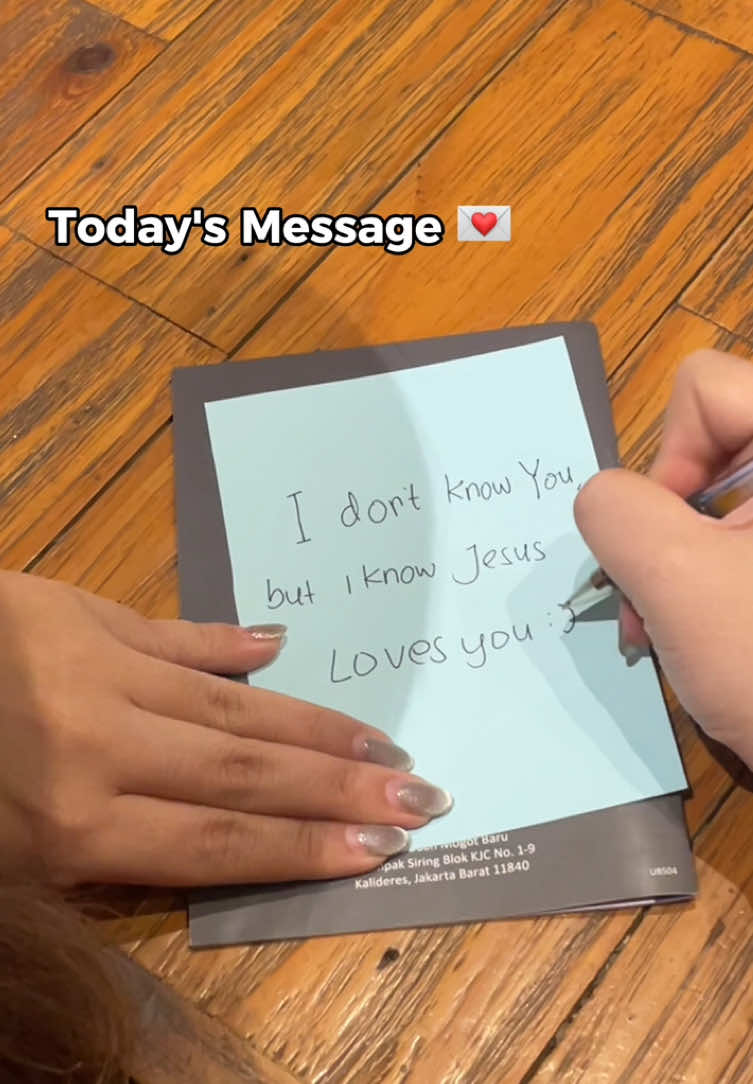 Today's Message 💌
I don't know You,
but I know Jesus
Loves you :)
Baru
Siring Blok KJC No. 1-9
Kalideres, Jakarta Barat 11840
UBS04